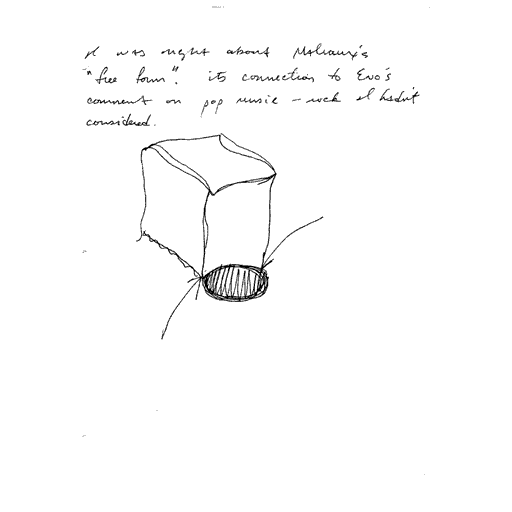 I was right about Malraux's
"free form". its connection to Eno's
comment on pop music – rock I hadn't
considered.